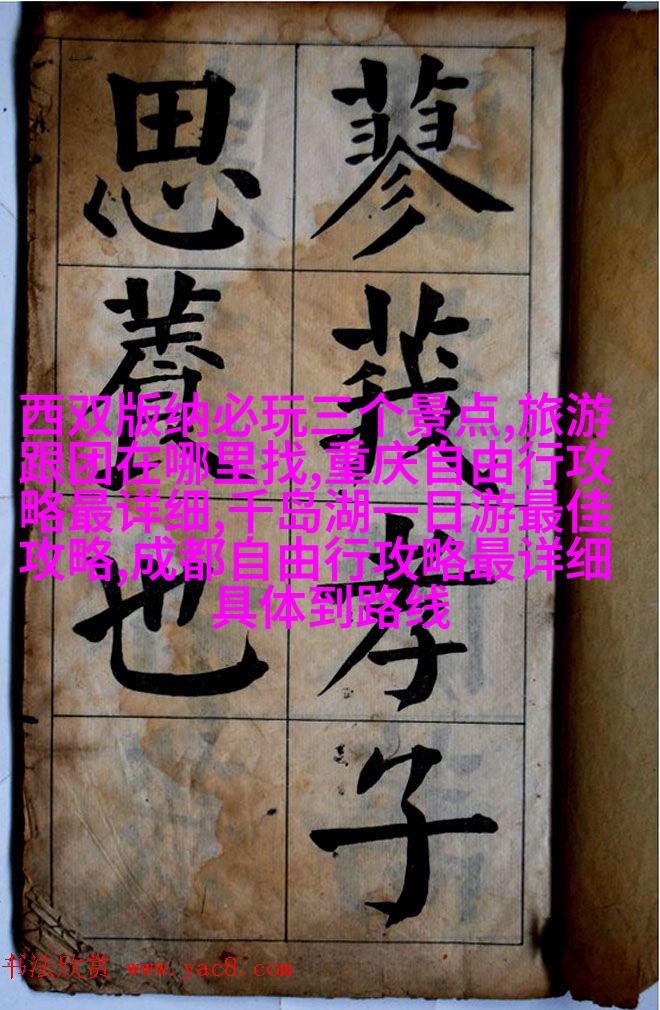 蓼莪孝子
思養也
西双版纳必玩三个景点,旅游
跟团在哪里找,重庆自由行攻
略最详细,千岛湖一日游最佳
攻略,成都自由行攻略最详细
具体到路线
书法欣赏 www.yac8.com